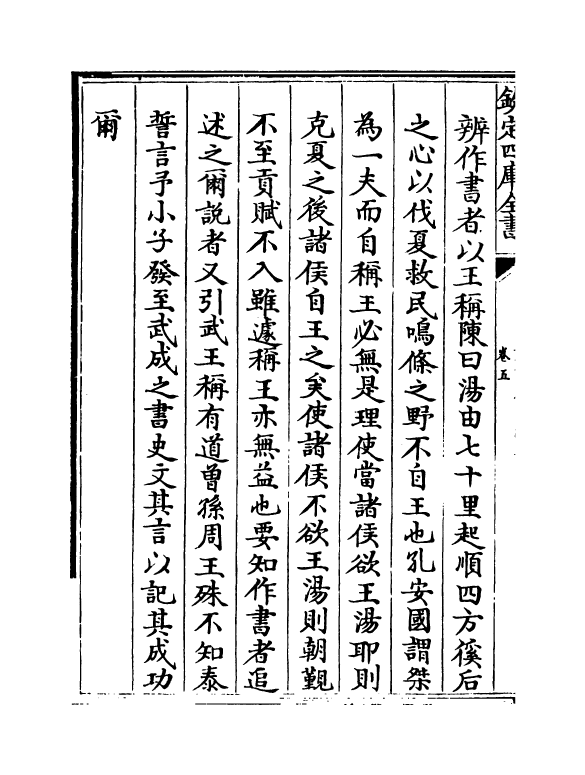 欽定四庫全書
卷五
辨作書者以王稱陳曰湯由七十里起順四方徯后
之心以伐夏救民鳴條之野不自王也孔安國謂桀
為一夫而自稱王必無是理使當諸侯欲王湯耶則
克夏之後諸侯自王之矣使諸侯不欲王湯則朝覲
不至貢賦不入雖遽稱王亦無益也要知作書者追
述之爾說者又引武王稱有道曾孫周王殊不知泰
誓言予小子發至武成之書史文其言以記其成功
爾